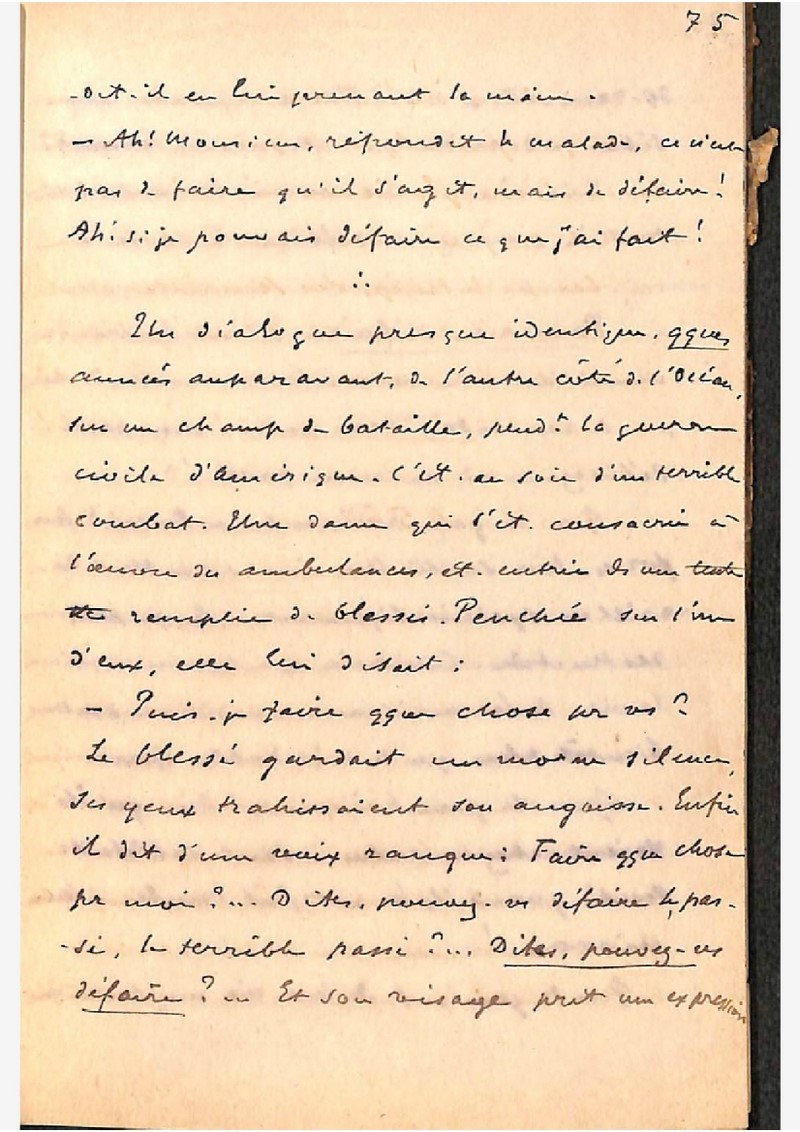 75
-dit-il en lui prenant la main.
— Ah! Monsieur, répondit le malade, ce n'est
pas de faire qu'il s'agit, mais de défaire!
Ah! si je pouvais défaire ce que j'ai fait!
∴
Un dialogue presque identique, qques
années auparavant, de l'autre côté de l'Océan,
sur un champ de bataille, pendt la guerre
civile d'Amérique. C'ét. au soir d'un terrible
combat. Une dame qui s'ét. consacrée à
l'œuvre des ambulances, ét. entrée ds une tente
remplie de blessés. Penchée sur l'un
d'eux, elle lui disait:
— Puis-je faire qque chose pr vs?
Le blessé gardait un morne silence,
ses yeux trahissaient son angoisse. Enfin
il dit d'une voix rauque: Faire qque chose
pr moi?... Dites, pouvez-vs défaire le pas-
-sé, le terrible passé?... Dites, pouvez-vs
défaire?... Et son visage prit une expression